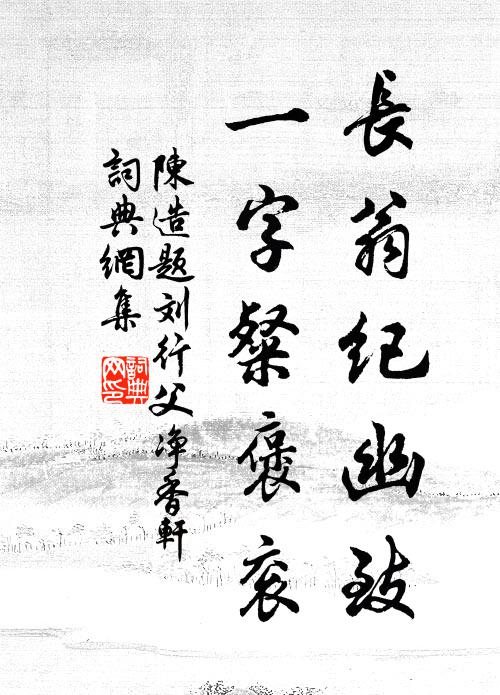 長翁纪幽致
一字粲褒衮
陳造题刘行父净香軒
詞典網集
詞典網印